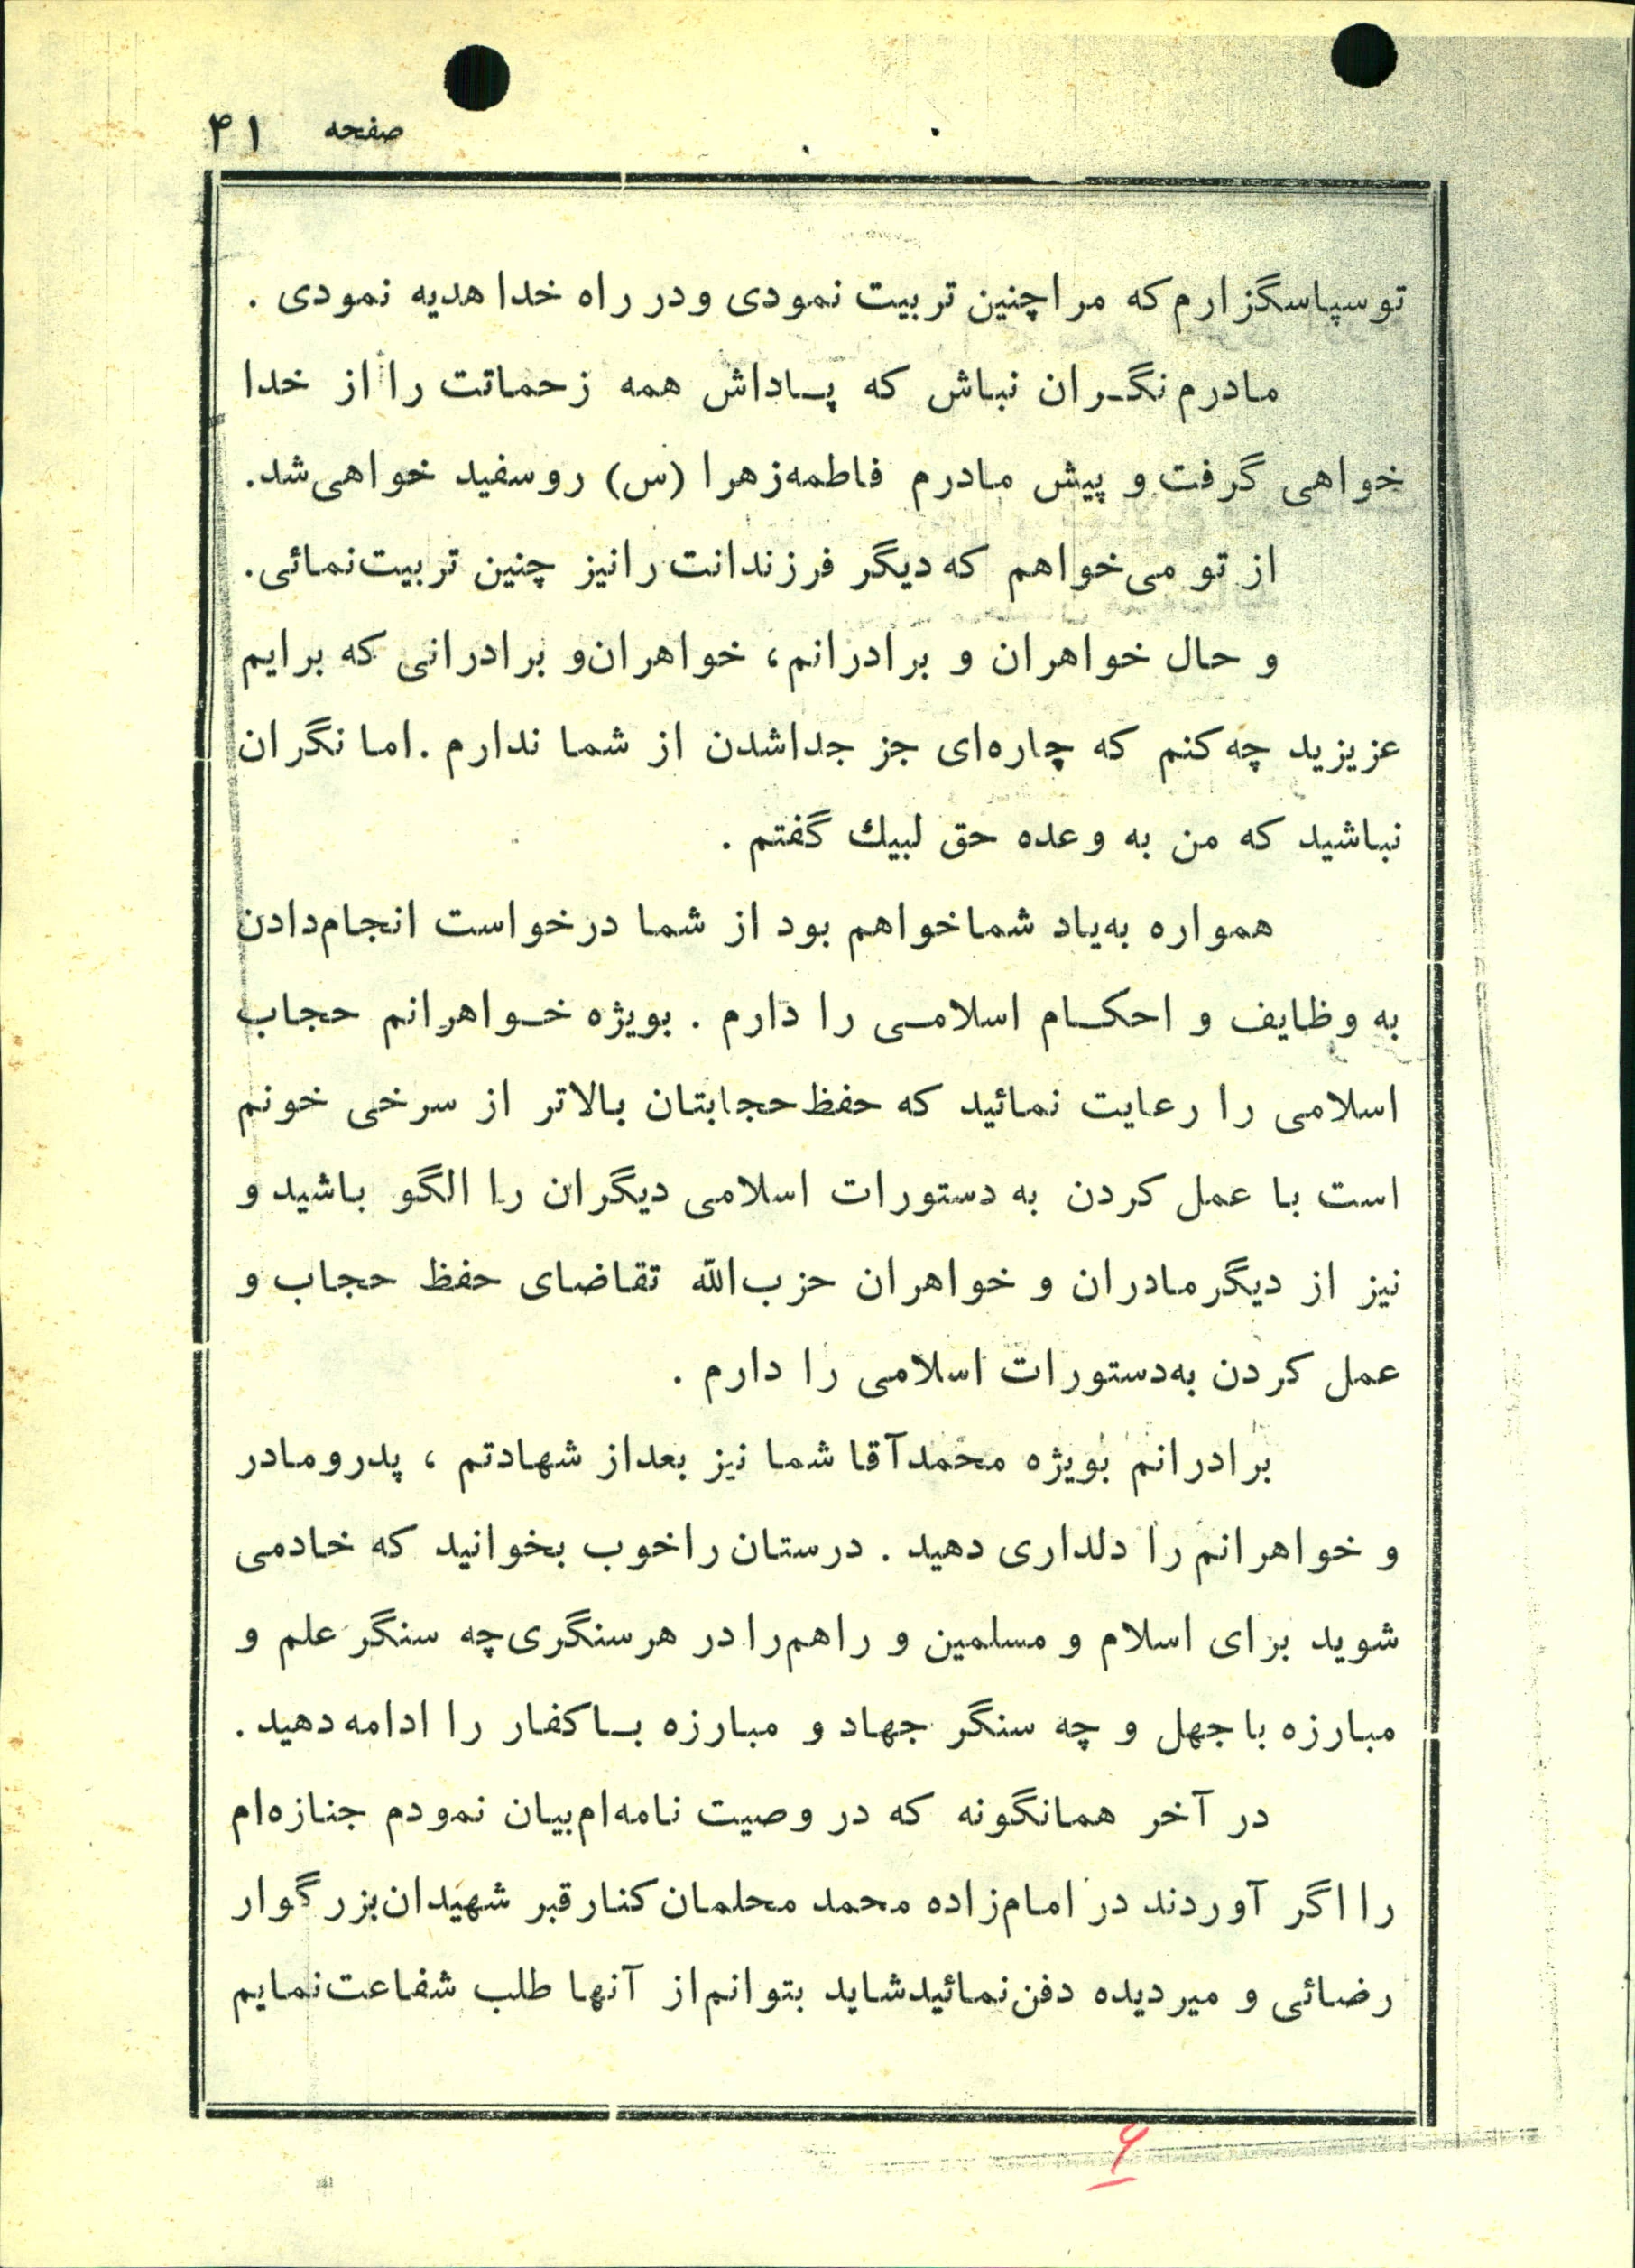 صفحه ۴۱
تو سپاسگزارم که مرا چنین تربیت نمودی و در راه خدا هدیه نمودی .
مادرم نگران نباش که پاداش همه زحماتت را از خدا
خواهی گرفت و پیش مادرم فاطمه‌زهرا (س) روسفید خواهی‌شد.
از تو می‌خواهم که دیگر فرزندانت را نیز چنین تربیت‌نمائی.
و حال خواهران و برادرانم، خواهران‌و برادرانی که برایم
عزیزید چه کنم که چاره‌ای جز جداشدن از شما ندارم . اما نگران
نباشید که من به وعده حق لبیك گفتم .
همواره به‌یاد شما خواهم بود از شما درخواست انجام‌دادن
به وظایف و احکام اسلامی را دارم . بویژه خواهرانم حجاب
اسلامی را رعایت نمائید که حفظ حجابتان بالاتر از سرخی خونم
است با عمل کردن به دستورات اسلامی دیگران را الگو باشید و
نیز از دیگر مادران و خواهران حزب‌الله تقاضای حفظ حجاب و
عمل کردن به‌دستورات اسلامی را دارم .
برادرانم بویژه محمدآقا شما نیز بعداز شهادتم ، پدرومادر
و خواهرانم را دلداری دهید . درستان را خوب بخوانید که خادمی
شوید برای اسلام و مسلمین و راهم‌را در هرسنگری‌چه سنگر علم و
مبارزه با جهل و چه سنگر جهاد و مبارزه با کفار را ادامه دهید .
در آخر همانگونه که در وصیت نامه‌ام‌بیان نمودم جنازه‌ام
را اگر آوردند در امام‌زاده محمد محلمان کنار قبر شهیدان‌بزرگوار
رضائی و میردیده دفن‌نمائید شاید بتوانم‌از آنها طلب شفاعت‌نمایم
۶